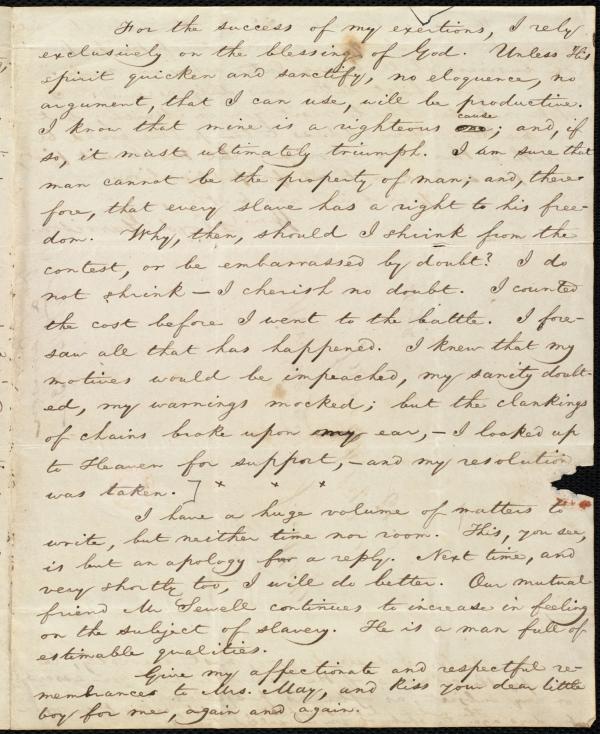 For the success of my exertions, I rely
exclusively on the blessing of God. Unless His
spirit quicken and sanctify, no eloquence, no
argument, that I can use, will be productive.
I know that mine is a righteous cause; and, if
so, it must ultimately triumph. I am sure that
man cannot be the property of man; and, there-
fore, that every slave has a right to his free-
dom. Why, then, should I shrink from the
contest, or be embarrassed by doubt? I do
not shrink — I cherish no doubt. I counted
the cost before I went to the battle. I fore-
saw all that has happened. I knew that my
motives would be impeached, my sanity doubt-
ed, my warnings mocked; but the clankings
of chains broke upon my ear, — I looked up
to Heaven for support, — and my resolution
was taken.] × × ×
I have a huge volume of matters to
write, but neither time nor room. This, you see,
is but an apology for a reply. Next time, and
very shortly too, I will do better. Our mutual
friend Mr Sewell continues to increase in feeling
on the subject of slavery. He is a man full of
estimable qualities.
Give my affectionate and respectful re-
membrances to Mrs. May, and kiss your dear little
boy for me, again and again.